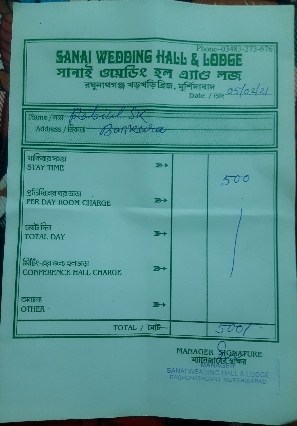 Phone-03483-273-676
SANAI WEDDING HALL & LODGE
সানাই ওয়েডিং হল এ্যাণ্ড লজ
রঘুনাথগঞ্জ খড়খড়ি ব্রিজ, মুর্শিদাবাদ
Date / তাং 05/02/21
Name / নাম Rabiul SK
Address / ঠিকানা
থাকিবার সময়
STAY TIME 500
প্রতিদিনের ঘর ভাড়া
PER DAY ROOM CHARGE
মোট দিন
TOTAL DAY
CONFERENCE HALL CHARGE
অন্যান্য
OTHER
TOTAL / মোট 500/
MANAGER SIGNATURE
ম্যানেজারের স্বাক্ষর
MANAGER
SANAI WEDDING HALL & LODGE
RAGHUNATHGANJ, MURSHIDABAD